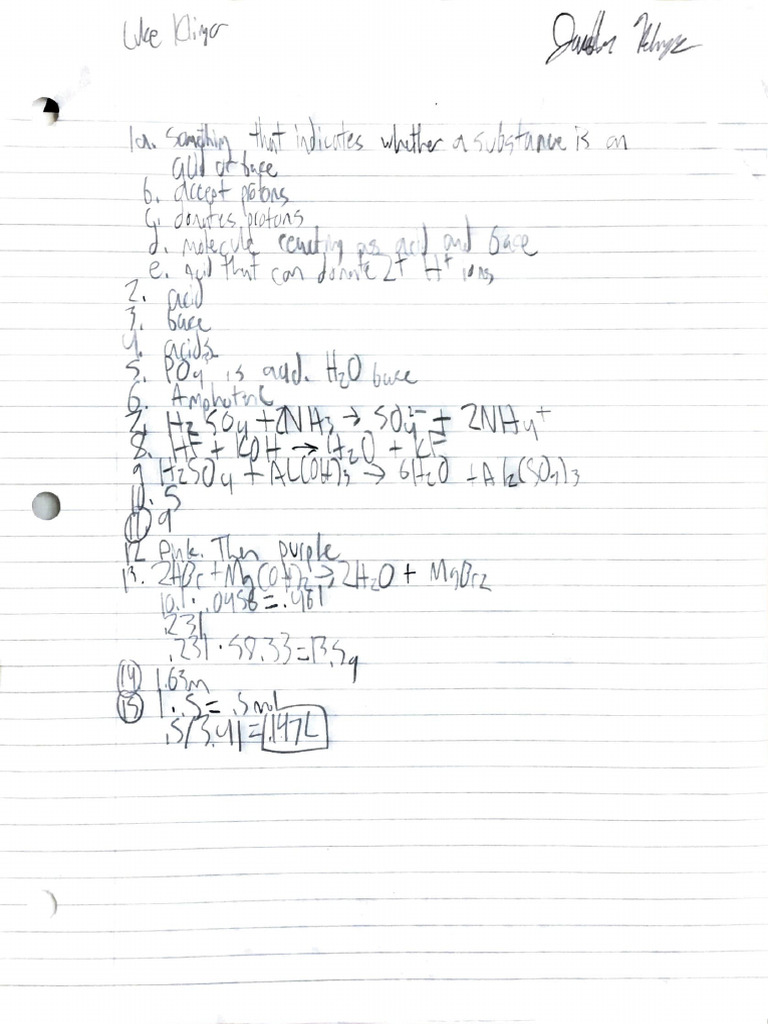 Luke Klinger
1a. Something that indicates whether a substance is an
acid or base
b. accept protons
c. donates protons
d. molecule reacting as acid and base
e. acid that can donate 2+ H+ ions
2. acid
3. base
4. acids
5. PO4 is acid. H2O base
6. Amphoteric
7. H2SO4 + 2NH3 → SO4²⁻ + 2NH4⁺
8. HF + KOH → H2O + KF
9 H2SO4 + Al(OH)3 → 6H2O + Al2(SO4)3
10. 5
11 9
12 Pink. Then purple
13. 2HBr + Mg(OH)2 → 2H2O + MgBr2
10.1 · .0456 = .461
.231
.231 · 58.33 = 13.5g
14 1.63m
15 1 · .5 = .5 mol
.5/3.41 = .147L